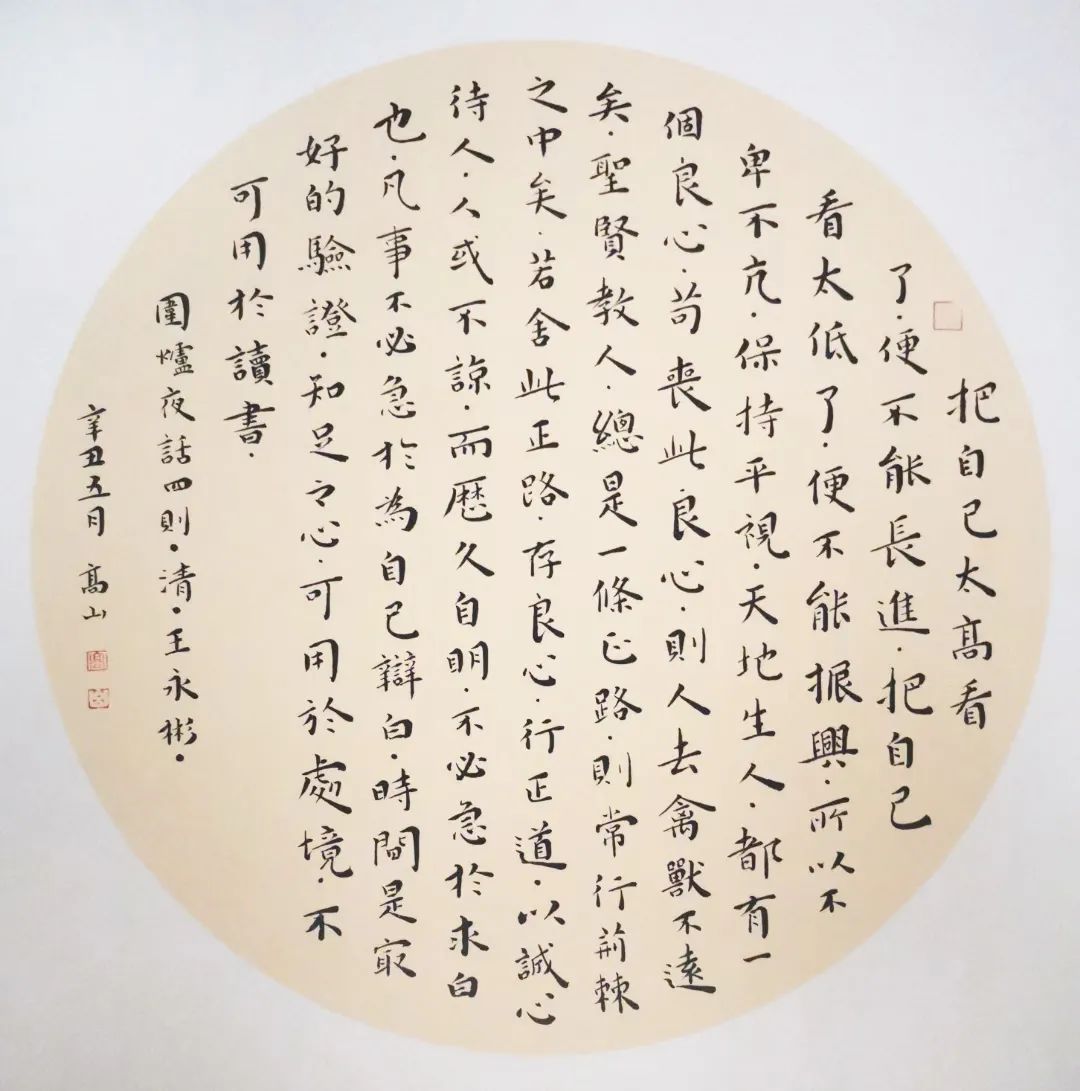 把自己太高看
了·便不能長進·把自己
看太低了·便不能振興·所以不
卑不亢·保持平視·天地生人·都有一
個良心·苟喪此良心·則人去禽獸不遠
矣·聖賢教人·總是一條正路·則常行荊棘
之中矣·若舍此正路·存良心·行正道·以誠心
待人·人或不諒·而歷久自明·不必急於求白
也·凡事不必急於為自己辯白·時間是最
好的驗證·知足之心·可用於處境·不
可用於讀書·
圍爐夜話四則·清·王永彬·
辛丑五月 高山